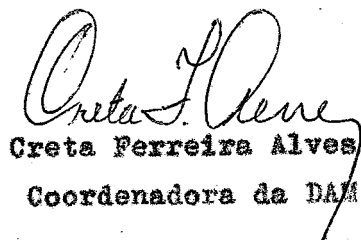 Creta F. Alves
Creta Ferreira Alves
Coordenadora da DAM